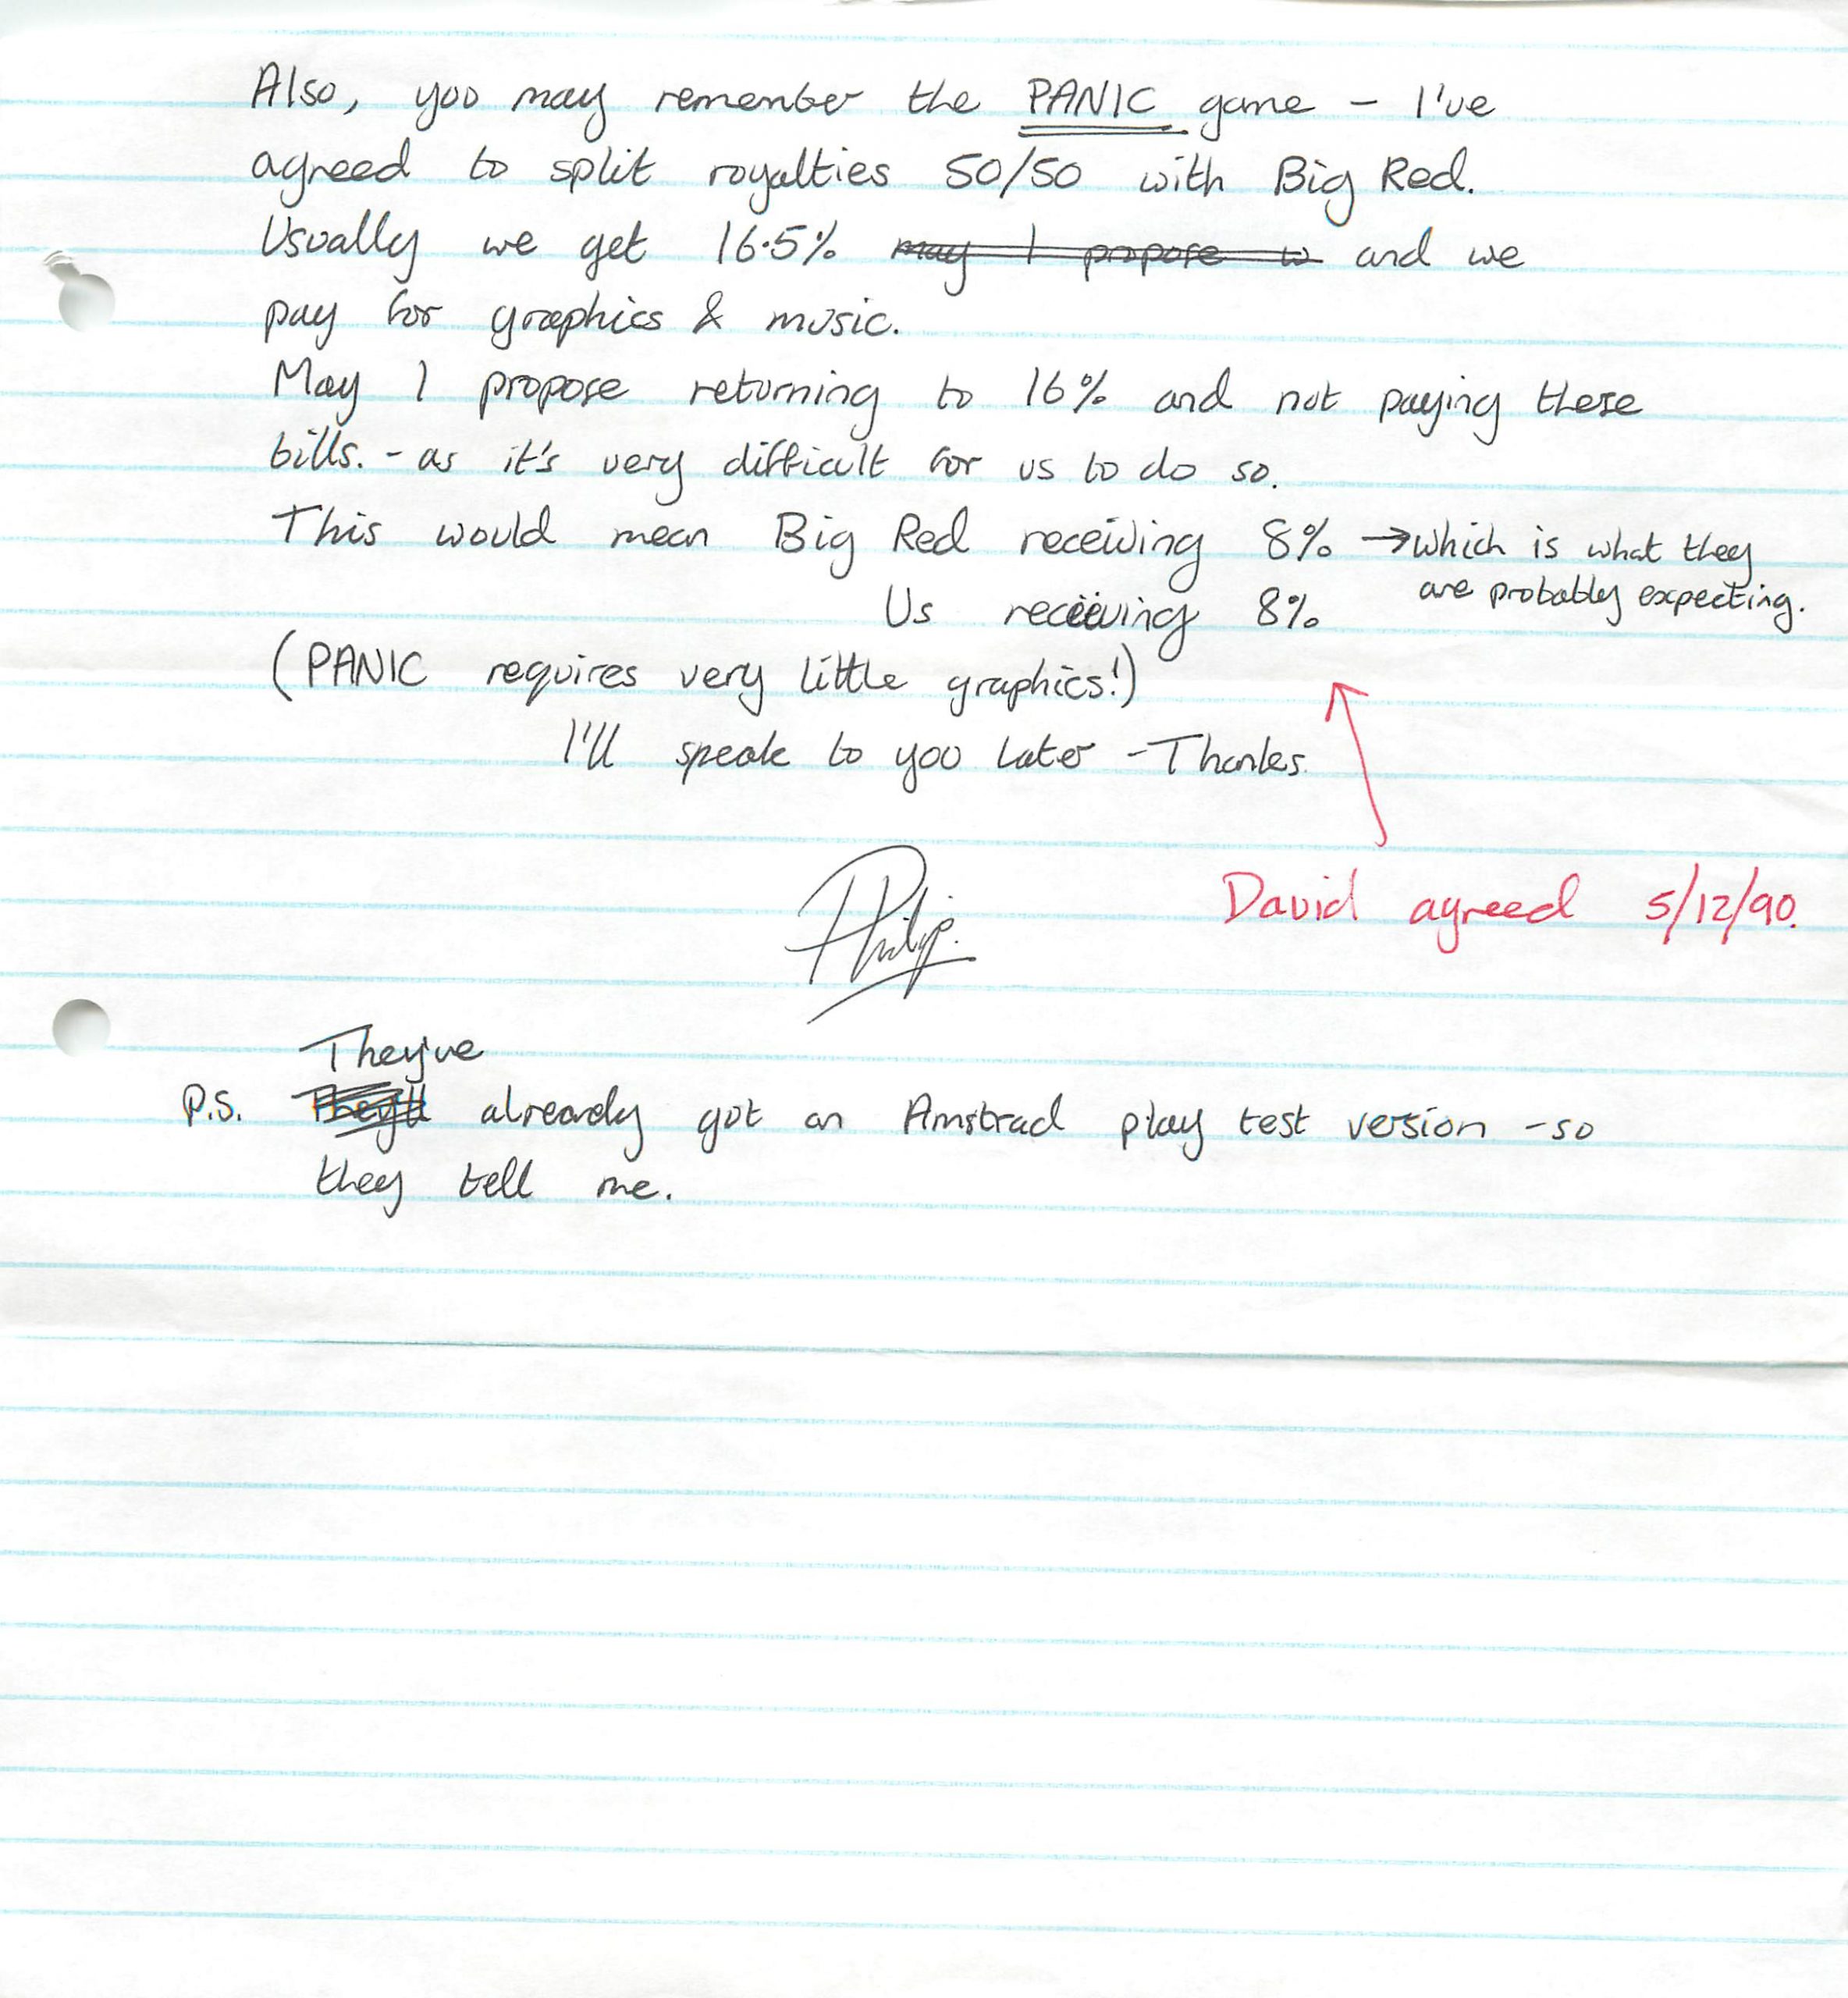 Also, you may remember the PANIC game - I've
agreed to split royalties 50/50 with Big Red.
Usually we get 16.5% may I propose w and we
pay for graphics & music.
May I propose returning to 16% and not paying these
bills. - as it's very difficult for us to do so.
This would mean Big Red receiving 8% → which is what they
are probably expecting.
Us receiving 8%
(PANIC requires very little graphics!)
I'll speak to you later - Thanks.
Philip.
David agreed 5/12/90.
They've
P.S. They'll already got an Amstrad play test version - so
they tell me.